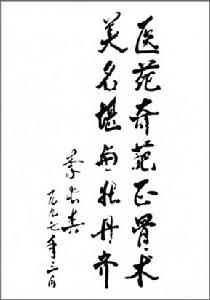 医苑奇葩正骨术
美名堪与牡丹齐
一九九七年三月